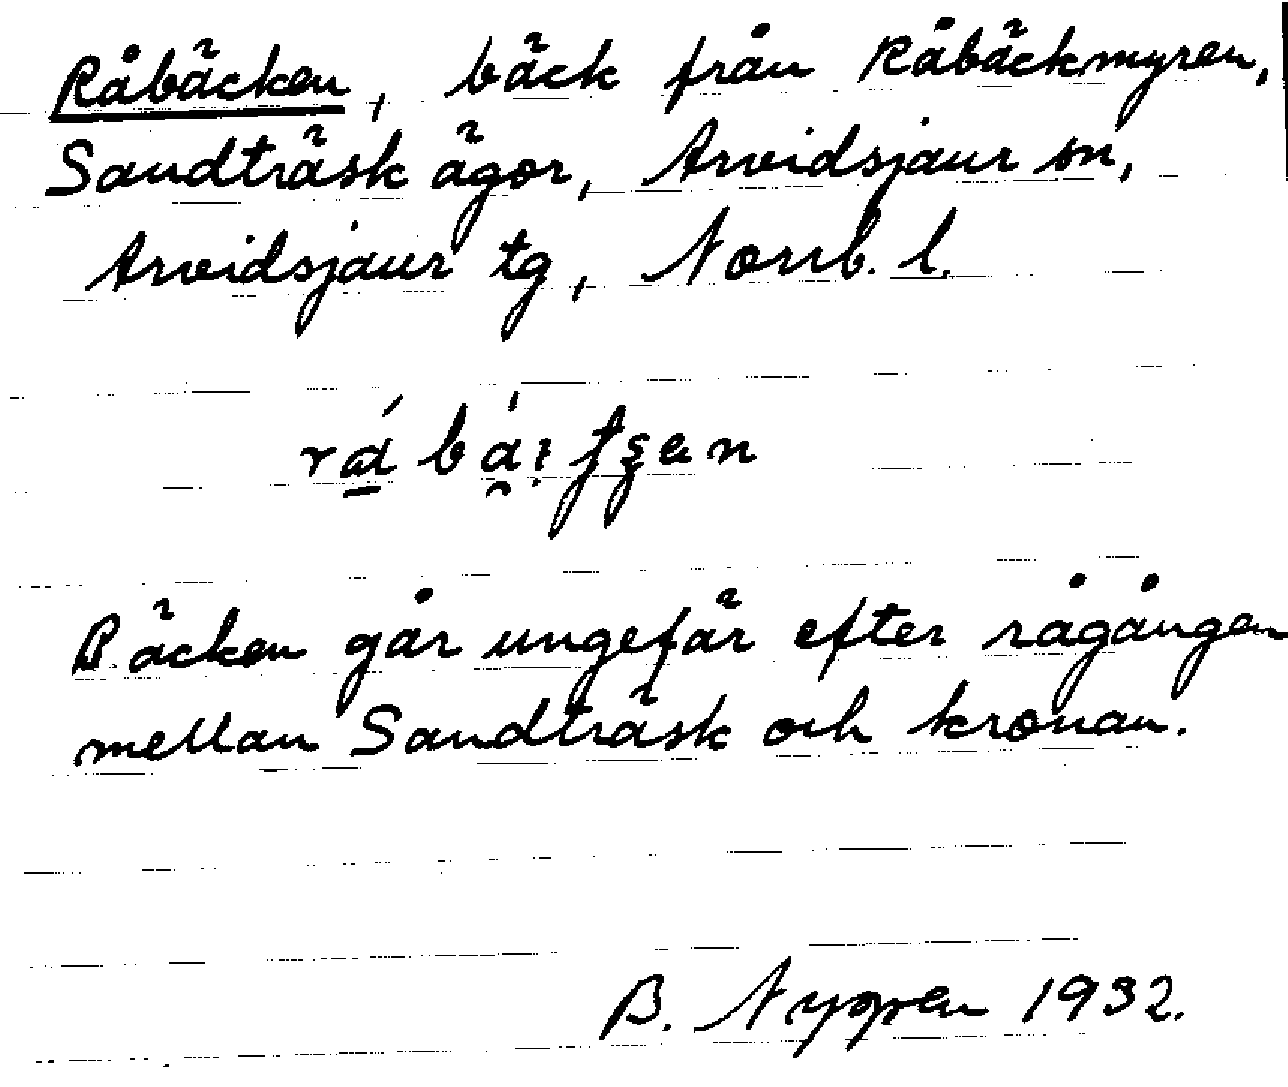 Råbäcken, bäck från Råbäckmyren,
Sandträsk ägor, Arvidsjaur sn,
Arvidsjaur tg, Norrb. l.
Bäcken går ungefär efter rågången
mellan Sandträsk och kronan.
B. Nyppen 1932.